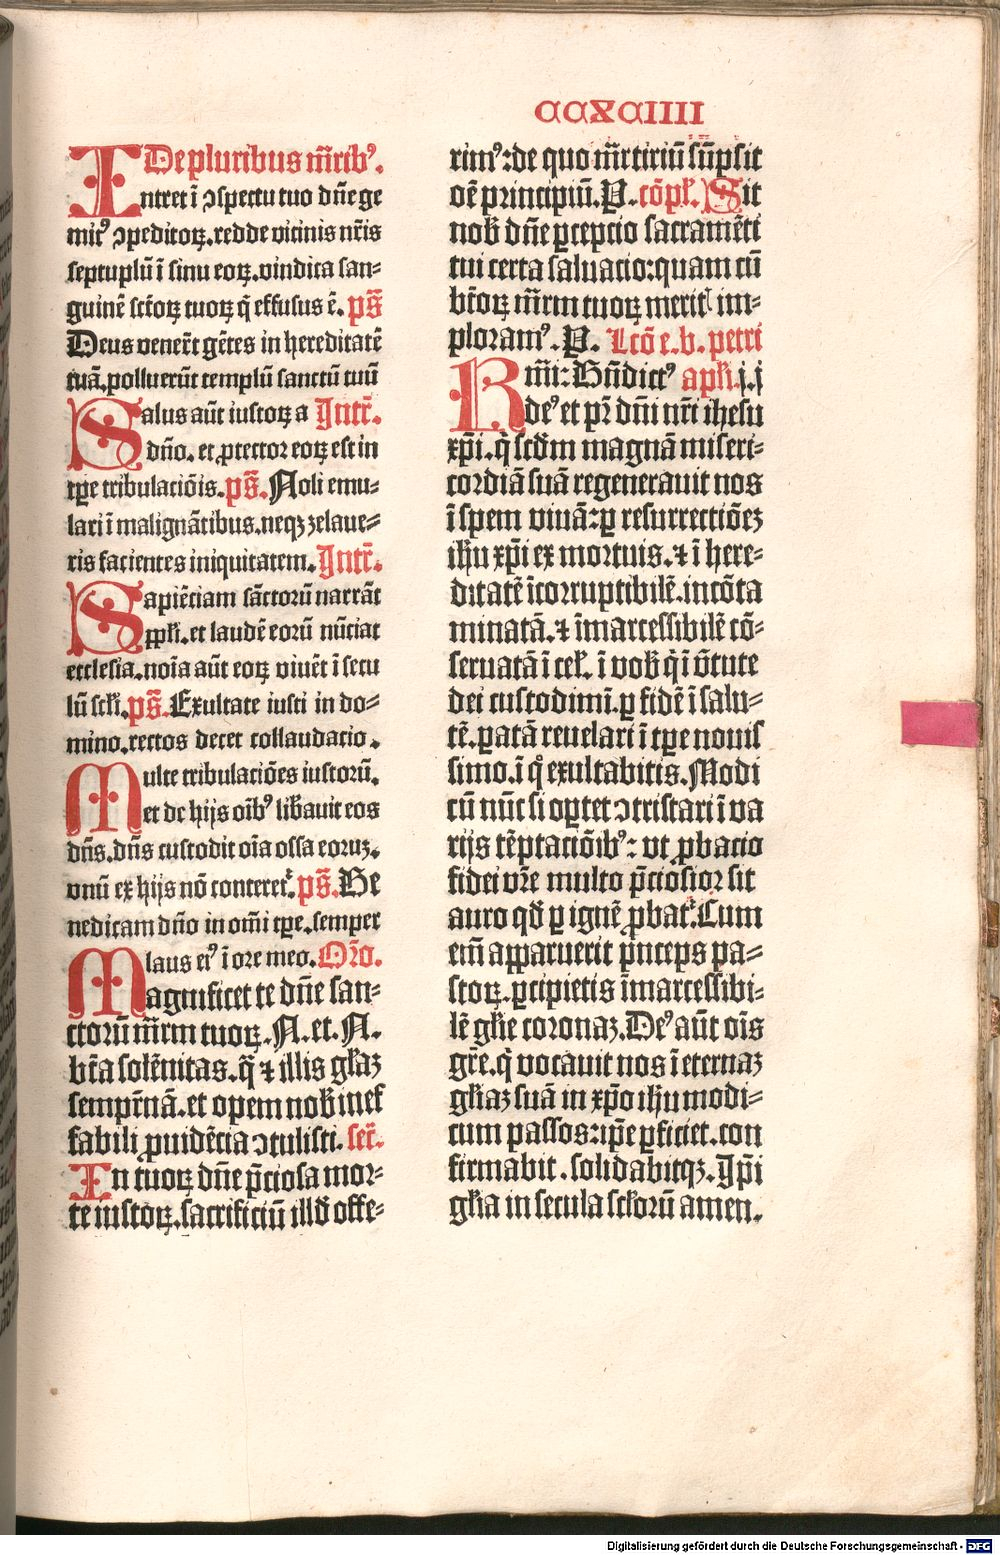 CCXCIIII
De pluribus mr̄ib⁹.
Intret ī ɔspectu tuo dn̄e ge
mit⁹ ɔpeditoꝝ.redde vicinis nr̄is
septuplū ī sinu eoꝝ.vindica san⸗
guinē sc̄toꝝ tuoꝝ q̄ effusus ē. ps̄
Deus venerūt gētes in hereditatē
tuā.polluerūt templū sanctū tuū
Salus aūt iustoꝝ a Intr̄.
dn̄o. et ꝓtector eoꝝ est in
tꝑe tribulaciōis. ps̄. Noli emu⸗
lari ī malignātibus.neqꝫ zelaue⸗
ris facientes iniquitatem. Intr̄.
Sapiēciam sāctorū narrāt
ppl̄i.et laudē eorū nūciat
ecclesia.noīa aūt eoꝝ viuēt ī secu
lū scl̄i. ps̄. Exultate iusti in do⸗
mino.rectos decet collaudacio.
Multe tribulaciōes iustorū.
et de hijs oīb⁹ lib̄auit eos
dn̄s.dn̄s custodit oīa ossa eoruꝫ.
vnū ex hijs nō conteret͛. ps̄. Be
nedicam dn̄o in om̄i tꝑe.semper
laus ei⁹ ī ore meo. Or̄o.
Magnificet te dn̄e san⸗
ctorū mr̄m tuoꝝ. N. et. N.
bt̄a solēnitas.q̄ ⁊ illis gl̄iaꝫ
semꝑnā.et opem nob̄ inef
fabili ꝓuidēcia ɔtulisti. secr̄.
In tuoꝝ dn̄e p̄ciosa mor⸗
te iustoꝝ.sacrificiū illd̄ offe⸗
rim⁹:de quo mr̄tiriū sūpsit
oē principiū.P. cōpl̄. Sit
nob̄ dn̄e ꝑcepcio sacramēti
tui certa saluacio:quam cū
bt̄oꝝ mr̄m tuoꝝ meritꝭ im⸗
ploram⁹. P. Lc̄o e. b. petri
Rm̄i: Bn̄dict⁹ apl̄i.j.j
de⁹ et pr̄ dn̄i nr̄i ihesu
xp̄i.q̄ scd̄m magnā miseri⸗
cordiā suā regenerauit nos
ī spem viuā:ꝑ resurrectiōeꝫ
ih̄u xp̄i ex mortuis.⁊ ī here⸗
ditatē īcorruptibilē.incōta
minatā.⁊ īmarcessibilē cō⸗
seruatā ī cel̄. ī vob̄ q̄ ī v̄tute
dei custodimī.ꝑ fidē ī salu⸗
tē.ꝑatā reuelari ī tꝑe nouis
simo.ī q̊ exultabitis.Modi
cū nūc si optet ɔtristari ī va
rijs tēptaciōib⁹: vt ꝓbacio
fidei vr̄e multo p̄ciosior sit
auro qd̄ ꝑ ignē ꝓbat͛.Cum
em̄ apparuerit p̄nceps pa⸗
stoꝝ.ꝑcipietis īmarcessibi⸗
lē gl̄ie coronaꝫ.De⁹ aūt oīs
gr̄e.q̄ vocauit nos ī eternaꝫ
gl̄iaꝫ suā in xp̄o ih̄u modi⸗
cum passos:ip̄e ꝑficiet.con
firmabit.solidabitqꝫ.Ip̄i
gl̄ia in secula scl̄orū amen.
Digitalisierung gefördert durch die Deutsche Forschungsgemeinschaft - DFG